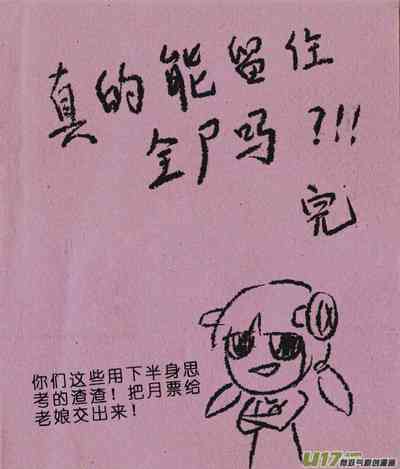 真的能留住
全尸吗？!!!
完
你们这些用下半身思
考的渣渣！把月票给
老娘交出来！
U17